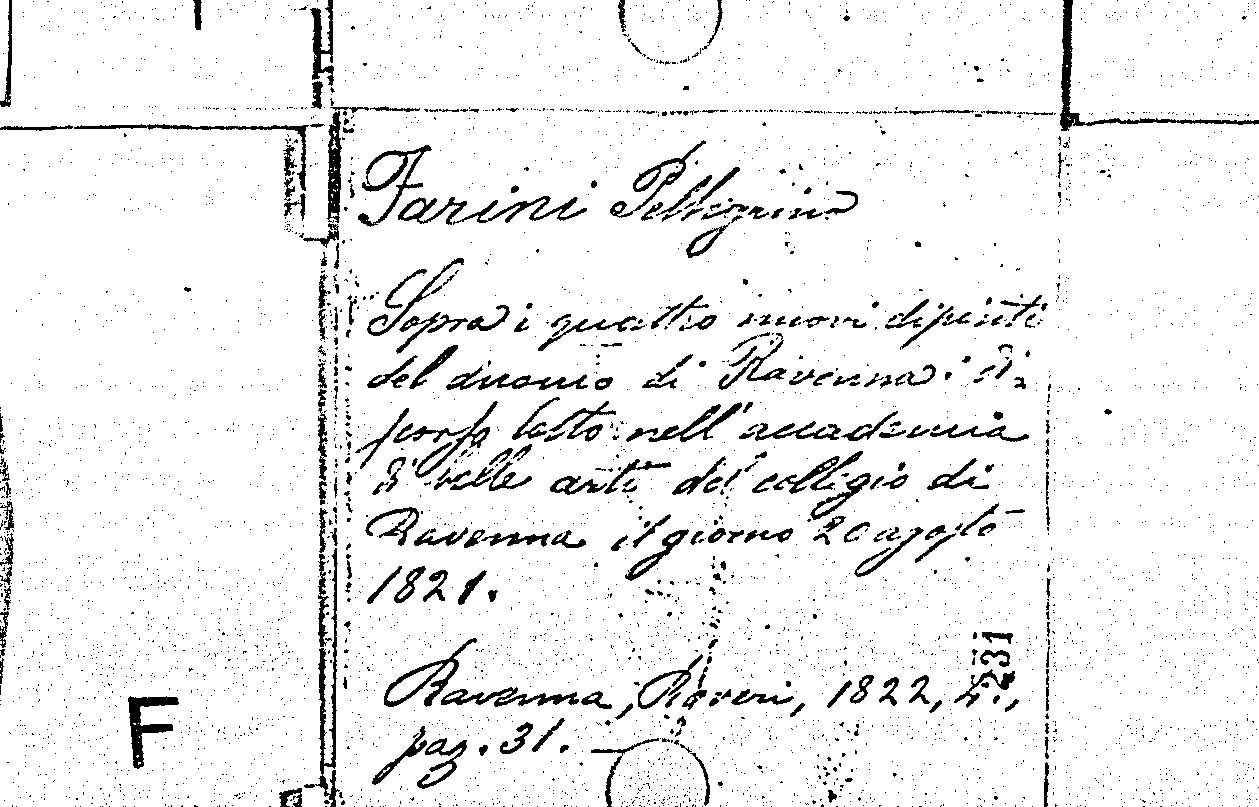 Farini Pellegrino
Sopra i quattro nuovi dipinti
del duomo di Ravenna: di-
scorso letto nell'accademia
di belle arti del collegio di
Ravenna il giorno 20 agosto
1821.
231
Ravenna, Roveri, 1822, 4.,
pag. 31. —
F